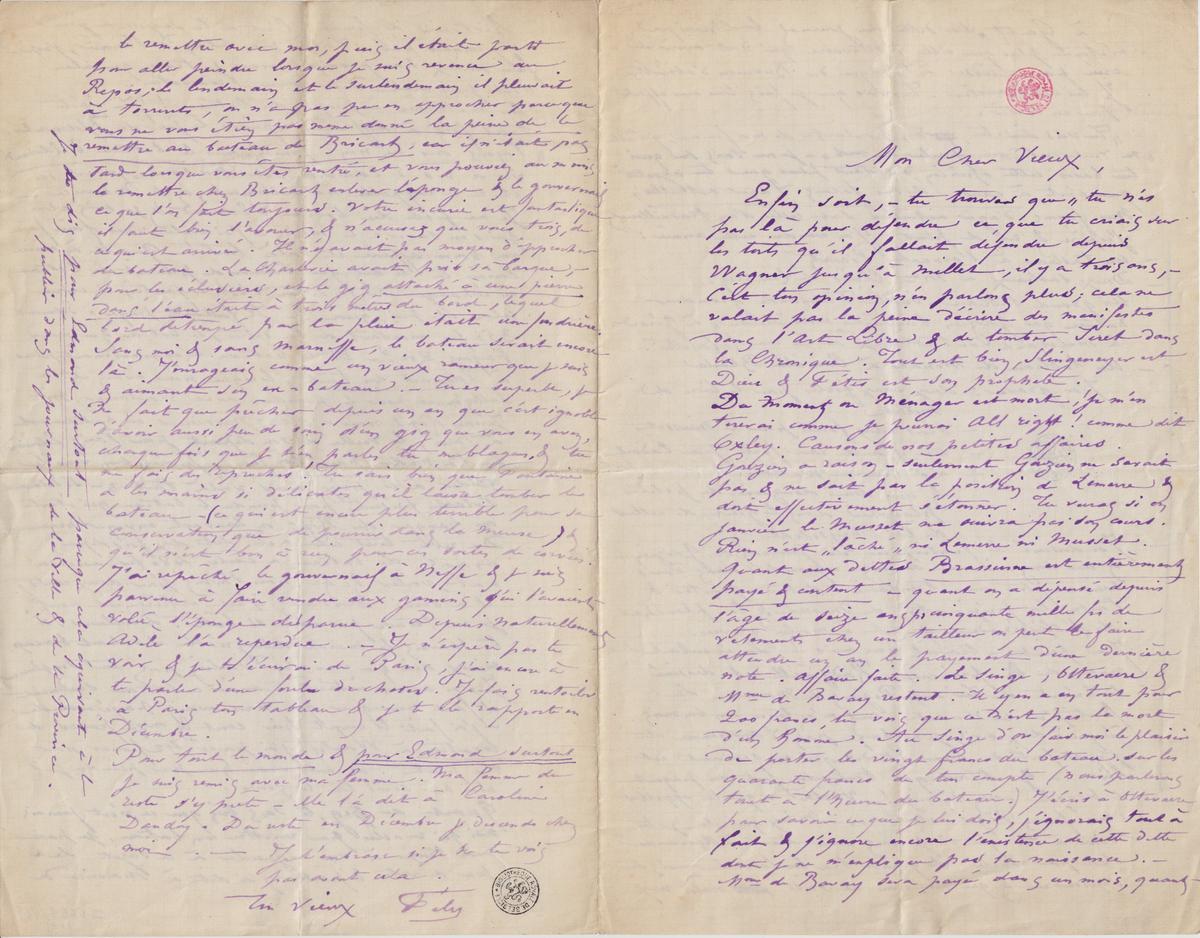 Mon Cher Vieux,
Enfin soit, — tu trouves que „ tu n'es
pas là pour défendre ce que tu criais sur
les toits qu'il fallait défendre depuis
Wagner jusqu'à Millet, il y a trois ans, —
C'est ton opinion, n'en parlons plus ; cela ne
valait pas la peine d'écrire des manifestes
dans l'Art Libre & de tomber Siret dans
la Chronique. Tout est bien, Slingeneyer est
Dieu & Fétis est son prophète.
Du moment où Ménager est mort, je m'en
tirerai comme je pourrai All right ! comme dit
Exley. Causons de nos petites affaires.
Gouzien a raison — seulement Gouzien ne savait
pas & ne sait pas la position de Lemerre &
doit effectivement s'étonner. Tu verras si en
janvier le Musset ne suivra pas son cours.
Rien n'est „ lâché „ ni Lemerre ni Musset.
Quant aux dettes Brassinne est entièrement
payé & content — quand on a dépensé depuis
l'âge de seize ans cinquante mille frs de
vêtements chez un tailleur on peut lui faire
attendre un an le payement d'une dernière
note. Affaire faite. Le Singe, Ottevaere &
Mme de Bavay restent. Il y en a en tout pour
200 francs, tu vois que ce n'est pas la mort
d'un homme. Au Singe d'or fais moi le plaisir
de porter les vingt francs du bateau sur les
quarante francs de ton compte (nous parlerons
tout à l'heure du bateau.) J'écris à Ottevaere
pour savoir ce que je lui dois, j'ignorais tout à
fait & j'ignore encore l'existence de cette dette
dont je ne m'explique pas la naissance. —
Mme de Bavay sera payé dans un mois, quant
le remettre avec moi, puis il était parti
pour aller peindre lorsque je suis revenu du
Repos, le lendemain et le surlendemain il pleuvait
à torrents, on n'a pas pu en approcher parce que
vous ne vous étiez pas même donné la peine de le
remettre au bateau de Bricart, car il n'était pas
tard lorsque vous êtes rentré, et vous pouviez au moins
le remettre chez Bricart enlever l'éponge & le gouvernail
ce que l'on fait toujours. Votre incurie est fantastique
il faut bien l'avouer, & n'accusez que vous trois, de
ce qui est arrivé. Il n'y avait pas moyen d'approcher
du bateau. La Chanterie avait pris sa barque, —
pour les éclusiers, et le gig attaché à une pierre
dans l'eau était à trois mètres du bord, lequel
bord détrempé par la pluie était une fondrière.
Sans moi & sans Marnesse, le bateau serait encore
là. J'enrageais comme un vieux rameur que je suis
& aimant son en-bateau. — Tu es superbe, je
ne fait que prêcher depuis un an que c'est ignoble
d'avoir aussi peu de soin d'un gig que vous en avez,
chaque fois que je t'en parle tu me blagues, & tu
me fais des reproches ! Tu sais bien que Fontaine
a les mains si délicates qu'il laisse tomber les
bateaux — (ce qui est encore plus terrible pour sa
conservation que de pourrir dans la Meuse) &
qu'il n'est bon à rien pour ces sortes de corvées.
J'ai repêché le gouvernail à Neffe & je suis
parvenu à faire rendre aux gamins qui l'avaient
volée, l'éponge disparue. Depuis naturellement
Adèle l'a reperdue. — Je n'espère pas te
voir & je t'écrirai de Paris, j'ai encore à
te parler d'une foule de choses. Je fais rentoiler
à Paris ton tableau & je te le rapporte en
Décembre.
Pour tout le monde & pour Edmond surtout
je suis remis avec ma femme. Ma femme du
reste s'y prête — elle l'a dit à Caroline
Dandoy. Du reste en Décembre je descends chez
moi. — Je t'embrasse si je ne te vois
pas avant cela.
Ton vieux Fély
Je dis pour Edmond surtout parceque cela équivaut à le
publier dans les journaux de la ville & de la Province.
BIBLIOTHÈQUE ROYALE DE BELGIQUE